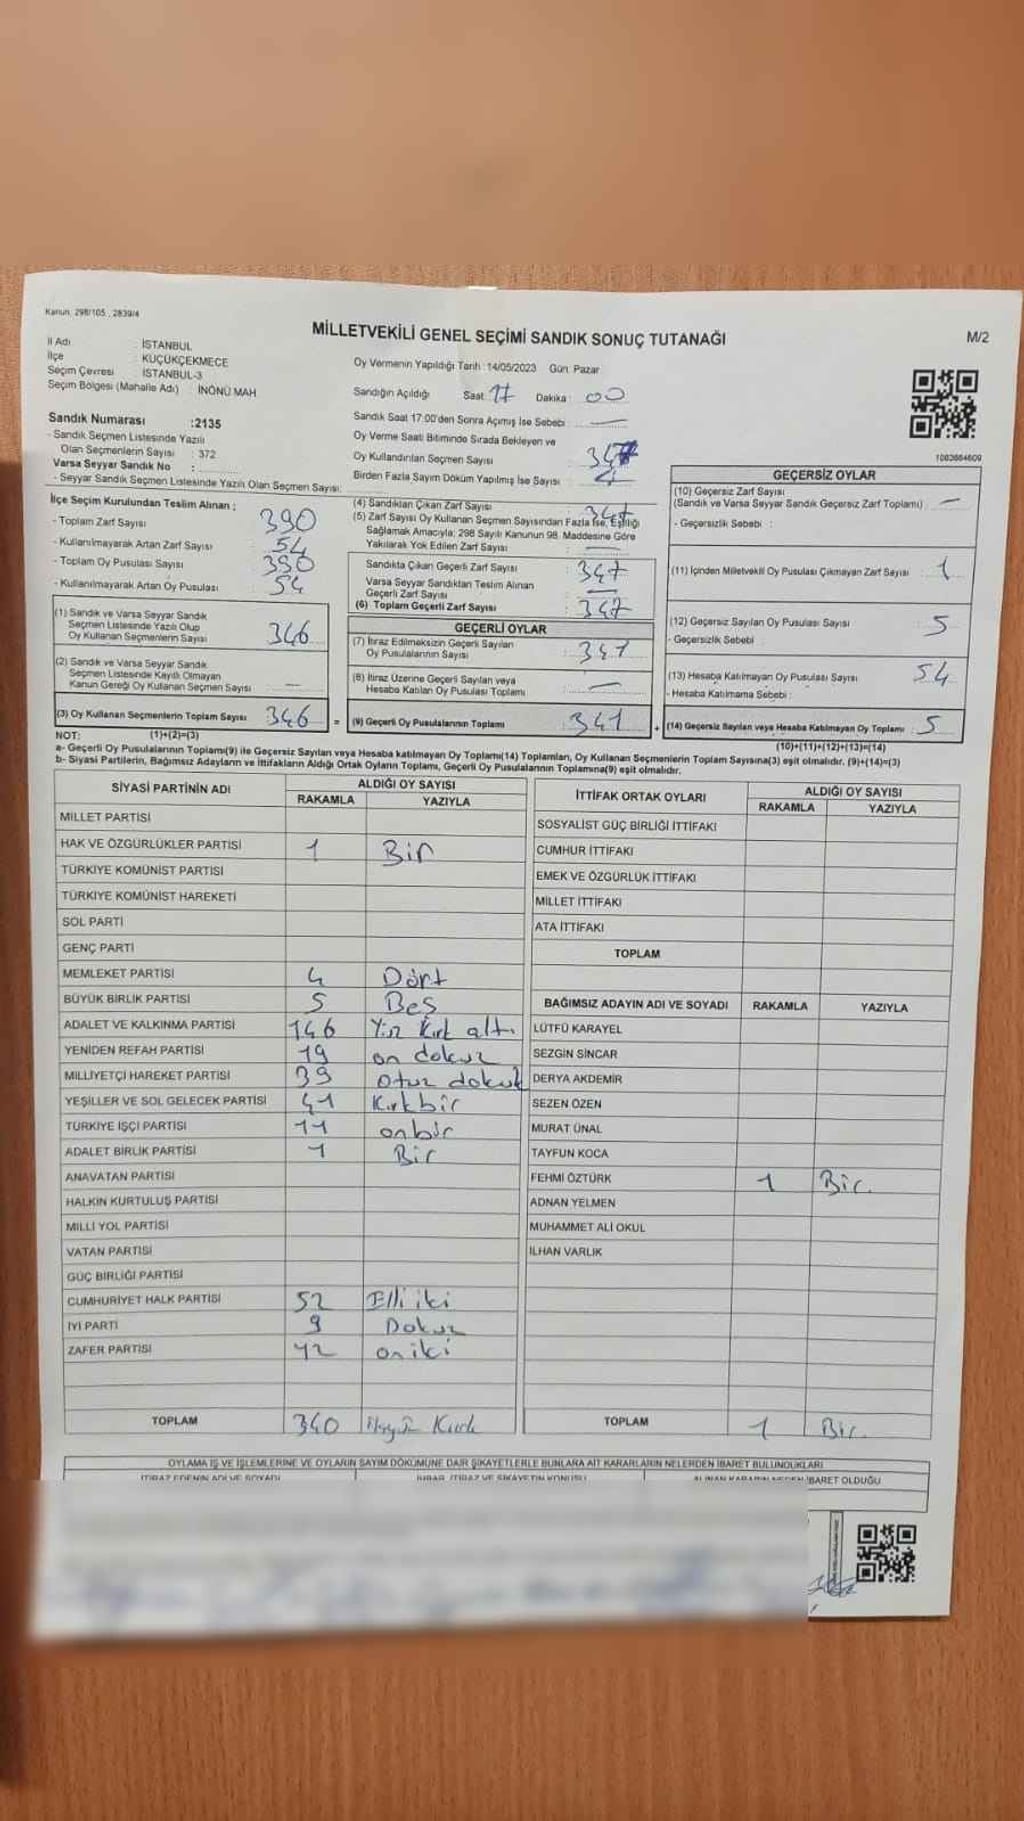 Kanun: 298/105 , 2839/4
MİLLETVEKİLİ GENEL SEÇİMİ SANDIK SONUÇ TUTANAĞI
M/2
İl Adı : İSTANBUL
İlçe : KÜÇÜKÇEKMECE
Seçim Çevresi : İSTANBUL-3
Seçim Bölgesi (Mahalle Adı) : İNÖNÜ MAH
Sandık Numarası :2135
- Sandık Seçmen Listesinde Yazılı
Olan Seçmenlerin Sayısı : 372
Varsa Seyyar Sandık No :
- Seyyar Sandık Seçmen Listesinde Yazılı Olan Seçmen Sayısı:
Oy Vermenin Yapıldığı Tarih :14/05/2023 Gün: Pazar
Sandığın Açıldığı Saat: 17 Dakika : 00
Sandık Saat 17:00'den Sonra Açımış İse Sebebi : —
Oy Verme Saati Bitiminde Sırada Bekleyen ve
Oy Kullandırılan Seçmen Sayısı
Birden Fazla Sayım Döküm Yapılmış İse Sayısı :
1003664609
İlçe Seçim Kurulundan Teslim Alınan ;
- Toplam Zarf Sayısı : 390
- Kullanılmayarak Artan Zarf Sayısı : 54
- Toplam Oy Pusulası Sayısı : 390
- Kullanılmayarak Artan Oy Pusulası : 54
(1) Sandık ve Varsa Seyyar Sandık
Seçmen Listesinde Yazılı Olup
Oy Kullanan Seçmenlerin Sayısı : 346
(2) Sandık ve Varsa Seyyar Sandık
Seçmen Listesinde Kayıtlı Olmayan
Kanun Gereği Oy Kullanan Seçmen Sayısı : —
(3) Oy Kullanan Seçmenlerin Toplam Sayısı : 346 =
(4) Sandıktan Çıkan Zarf Sayısı : 347
(5) Zarf Sayısı Oy Kullanan Seçmen Sayısından Fazla İse, Eşitliği
Sağlamak Amacıyla; 298 Sayılı Kanunun 98. Maddesine Göre
Yakılarak Yok Edilen Zarf Sayısı : —
Sandıkta Çıkan Geçerli Zarf Sayısı : 347
Varsa Seyyar Sandıktan Teslim Alınan
Geçerli Zarf Sayısı : —
(6) Toplam Geçerli Zarf Sayısı : 347
GEÇERLİ OYLAR
(7) İtiraz Edilmeksizin Geçerli Sayılan
Oy Pusulalarının Sayısı : 341
(8) İtiraz Üzerine Geçerli Sayılan veya
Hesaba Katılan Oy Pusulası Toplamı : —
(9) Geçerli Oy Pusulalarının Toplamı : 341 +
GEÇERSİZ OYLAR
(10) Geçersiz Zarf Sayısı
(Sandık ve Varsa Seyyar Sandık Geçersiz Zarf Toplamı) : —
- Geçersizlik Sebebi :
(11) İçinden Milletvekili Oy Pusulası Çıkmayan Zarf Sayısı : 1
(12) Geçersiz Sayılan Oy Pusulası Sayısı : 5
- Geçersizlik Sebebi :
(13) Hesaba Katılmayan Oy Pusulası Sayısı : 54
- Hesaba Katılmama Sebebi :
(14) Geçersiz Sayılan veya Hesaba Katılmayan Oy Toplamı : 5
NOT: (1)+(2)=(3)
(10)+(11)+(12)+(13)=(14)
a- Geçerli Oy Pusulalarının Toplamı(9) ile Geçersiz Sayılan veya Hesaba katılmayan Oy Toplamı(14) Toplamları, Oy Kullanan Seçmenlerin Toplam Sayısına(3) eşit olmalıdır. (9)+(14)=(3)
b- Siyasi Partilerin, Bağımsız Adayların ve İttifakların Aldığı Ortak Oyların Toplamı, Geçerli Oy Pusulalarının Toplamına(9) eşit olmalıdır.
SİYASİ PARTİNİN ADI ALDIĞI OY SAYISI
RAKAMLA YAZIYLA
MİLLET PARTİSİ
HAK VE ÖZGÜRLÜKLER PARTİSİ 1 Bir
TÜRKİYE KOMÜNİST PARTİSİ
TÜRKİYE KOMÜNİST HAREKETİ
SOL PARTİ
GENÇ PARTİ
MEMLEKET PARTİSİ 4 Dört
BÜYÜK BİRLİK PARTİSİ 5 Beş
ADALET VE KALKINMA PARTİSİ 146 Yüz Kırk altı
YENİDEN REFAH PARTİSİ 19 on dokuz
MİLLİYETÇİ HAREKET PARTİSİ 39 Otuz dokuz
YEŞİLLER VE SOL GELECEK PARTİSİ 41 Kırkbir
TÜRKİYE İŞÇİ PARTİSİ 11 onbir
ADALET BİRLİK PARTİSİ 1 Bir
ANAVATAN PARTİSİ
HALKIN KURTULUŞ PARTİSİ
MİLLİ YOL PARTİSİ
VATAN PARTİSİ
GÜÇ BİRLİĞİ PARTİSİ
CUMHURİYET HALK PARTİSİ 52 Elli iki
İYİ PARTİ 9 Dokuz
ZAFER PARTİSİ 12 on iki
TOPLAM 340 Kırk
İTTİFAK ORTAK OYLARI ALDIĞI OY SAYISI
RAKAMLA YAZIYLA
SOSYALİST GÜÇ BİRLİĞİ İTTİFAKI
CUMHUR İTTİFAKI
EMEK VE ÖZGÜRLÜK İTTİFAKI
MİLLET İTTİFAKI
ATA İTTİFAKI
TOPLAM
BAĞIMSIZ ADAYIN ADI VE SOYADI RAKAMLA YAZIYLA
LÜTFÜ KARAYEL
SEZGİN SİNCAR
DERYA AKDEMİR
SEZEN ÖZEN
MURAT ÜNAL
TAYFUN KOCA
FEHMİ ÖZTÜRK 1 Bir.
ADNAN YELMEN
MUHAMMET ALİ OKUL
İLHAN VARLIK
TOPLAM 1 Bir.
OYLAMA İŞ VE İŞLEMLERİNE VE OYLARIN SAYIM DÖKÜMÜNE DAİR ŞİKAYETLERLE BUNLARA AİT KARARLARIN NELERDEN İBARET BULUNDUKLARI
İTİRAZ EDENİN ADI VE SOYADI İHBAR, İTİRAZ VE ŞİKAYETİN KONUSU ALINAN KARARIN NEDEN İBARET OLDUĞU